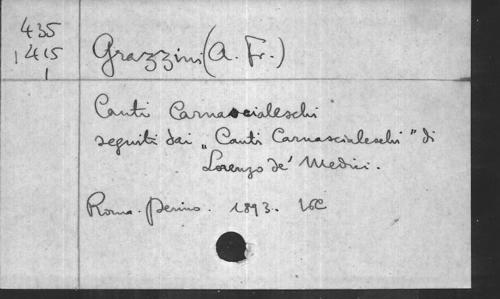 435
1415
1
Grazzini (A. Fr.)
Canti Carnascialeschi
seguiti dai „Canti Carnascialeschi" di
Lorenzo de' Medici.
Roma. Perino. 1893. 16º